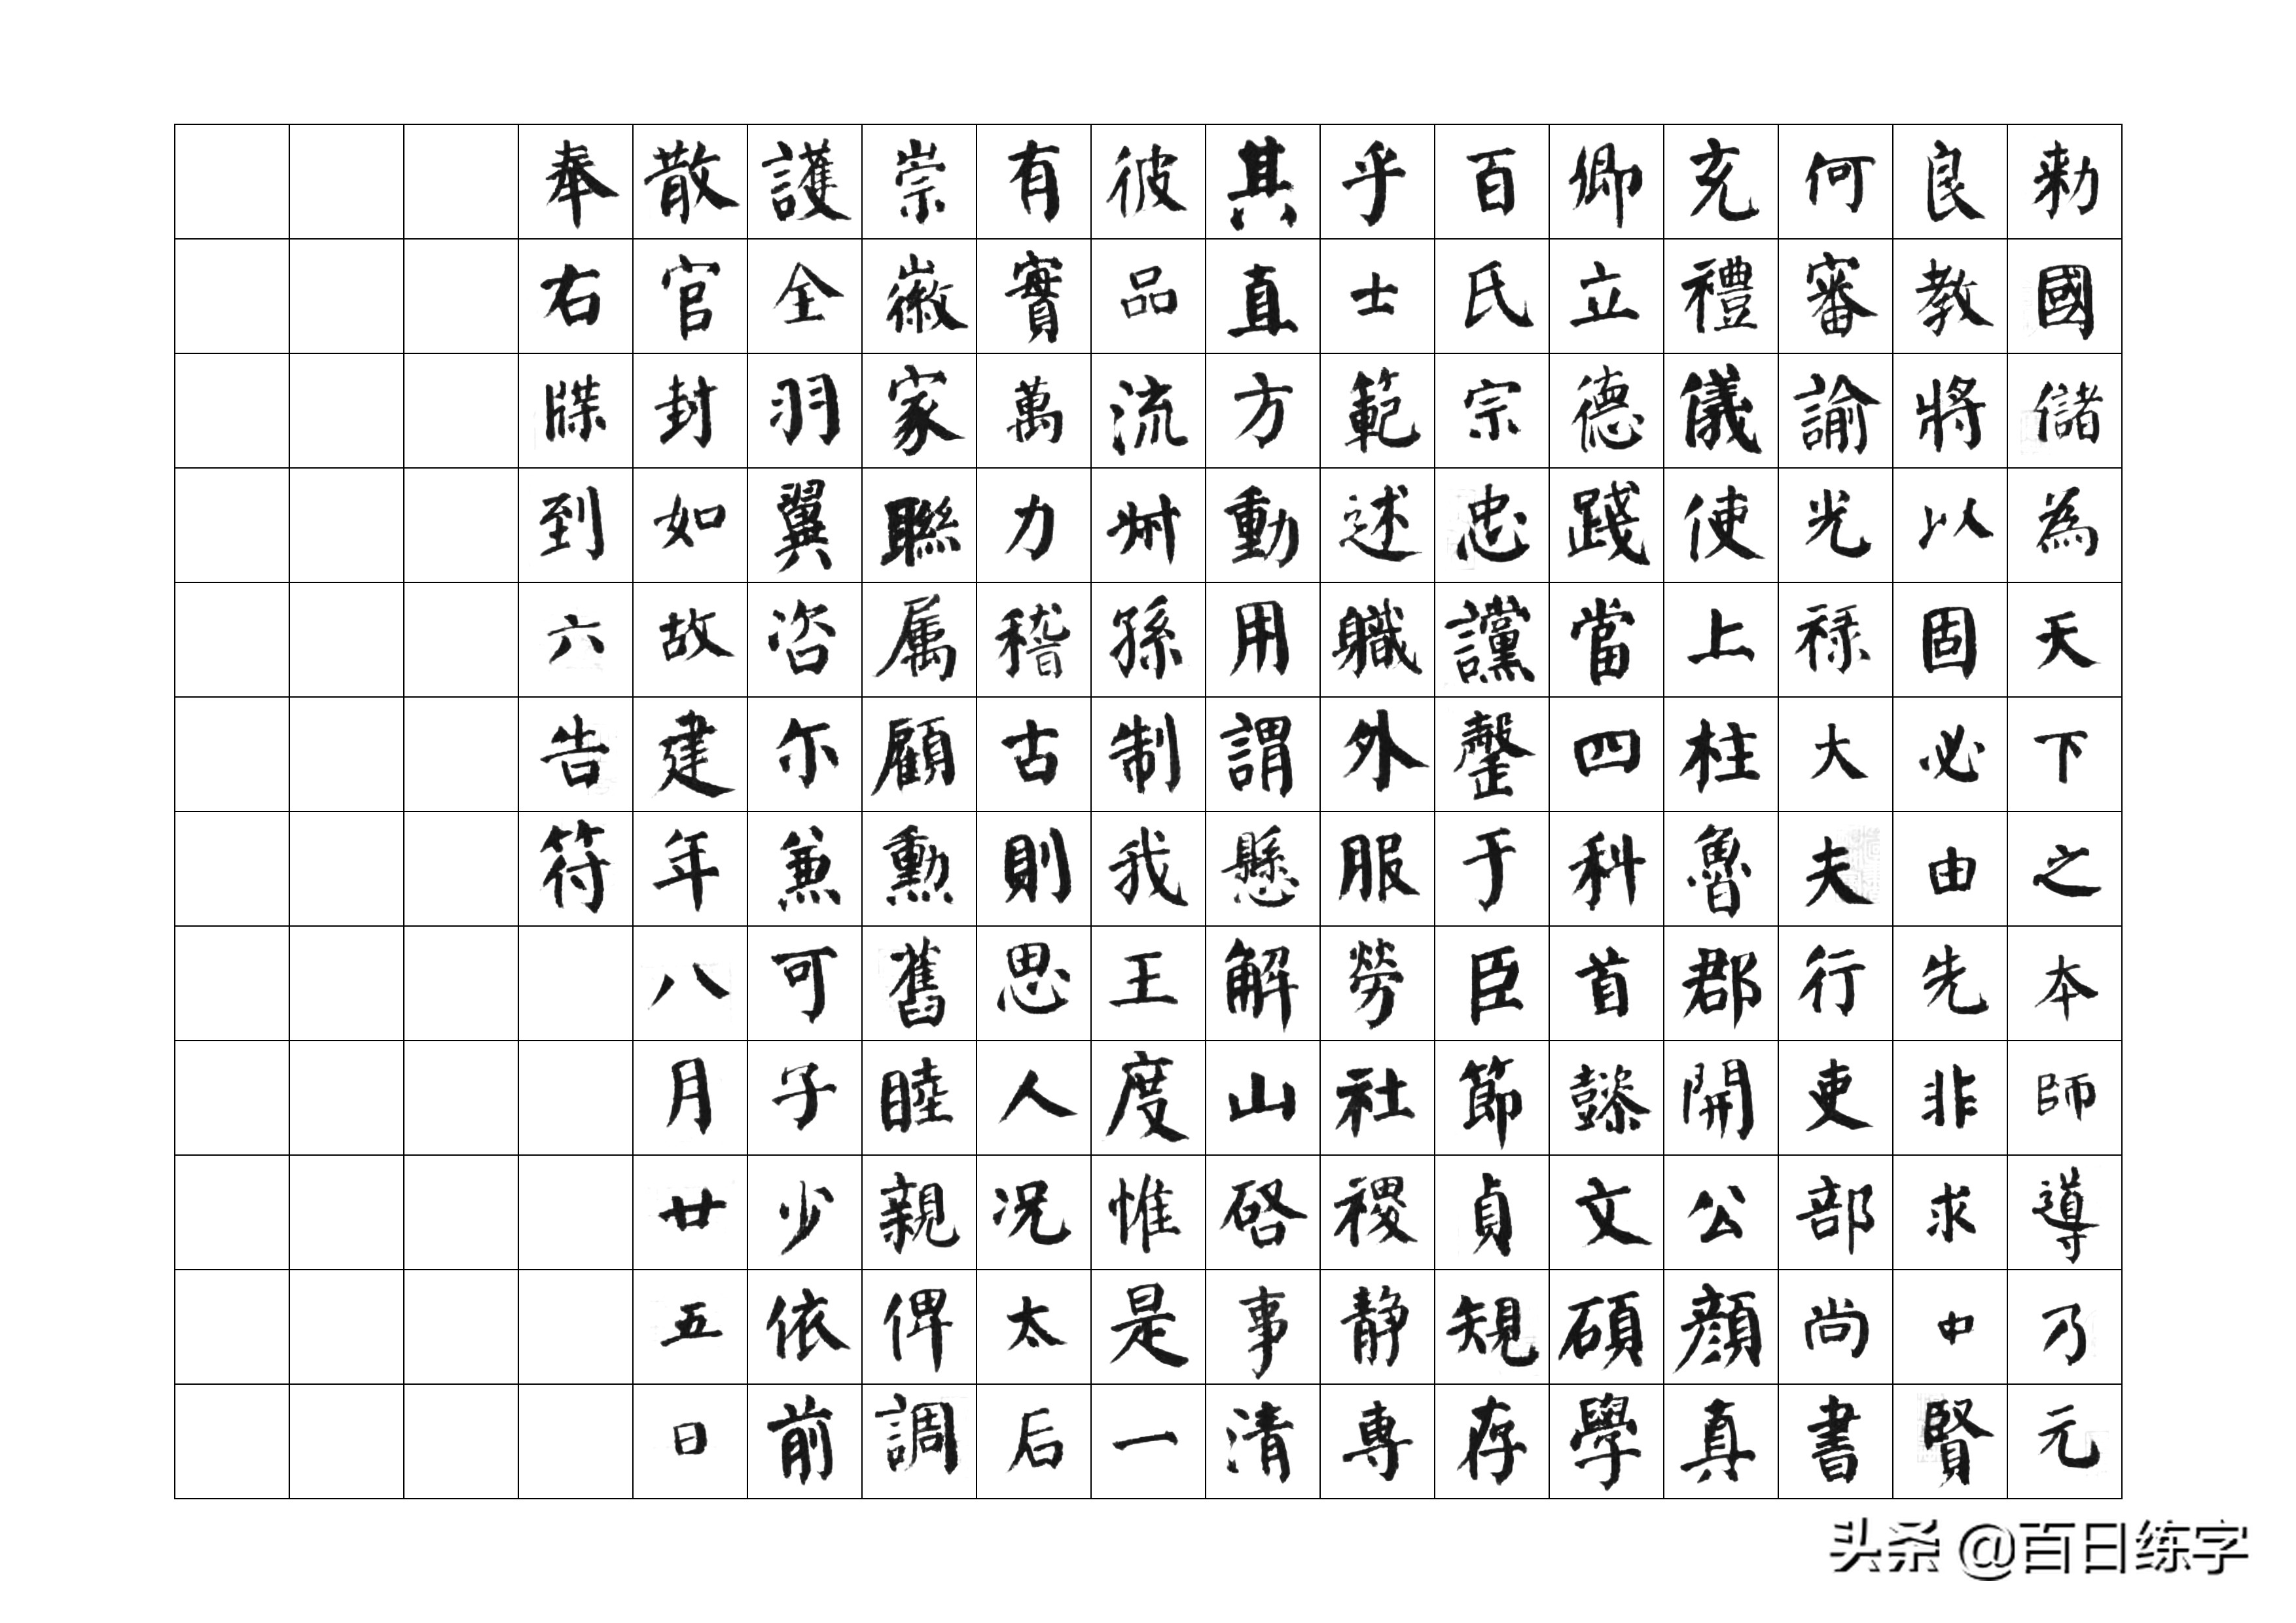 勑國儲為天下之本師導乃元
良教將以固必由先非求中賢
何審諭光禄大夫行吏部尚書
充禮儀使上柱魯郡開公顏真
卿立德踐當四科首懿文碩學
百氏宗忠讜罄于臣節貞規存
乎士範述職外服勞社稷静專
其直方動用謂懸解山啓事清
彼品流州孫制我王度惟是一
有實萬力稽古則思人况太后
崇徽家聯属顧勳舊睦親俾調
護全羽翼咨尒兼可子少依前
散官封如故建年八月廿五日
奉右牒到六告符
头条 @百日练字